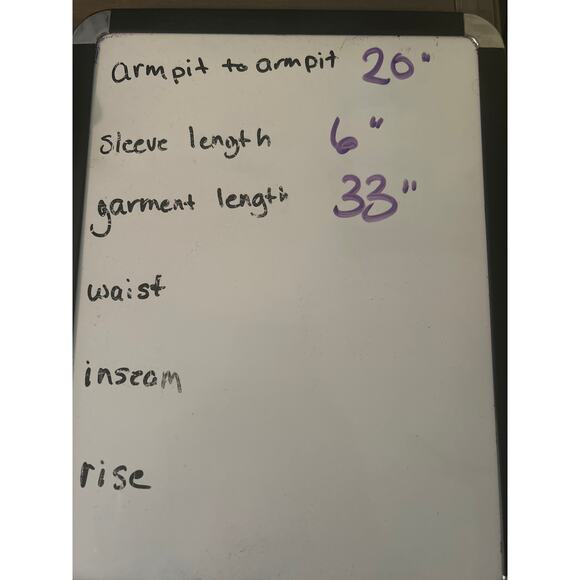 armpit to armpit 20"
sleeve length 6"
garment length 33"
waist
inseam
rise